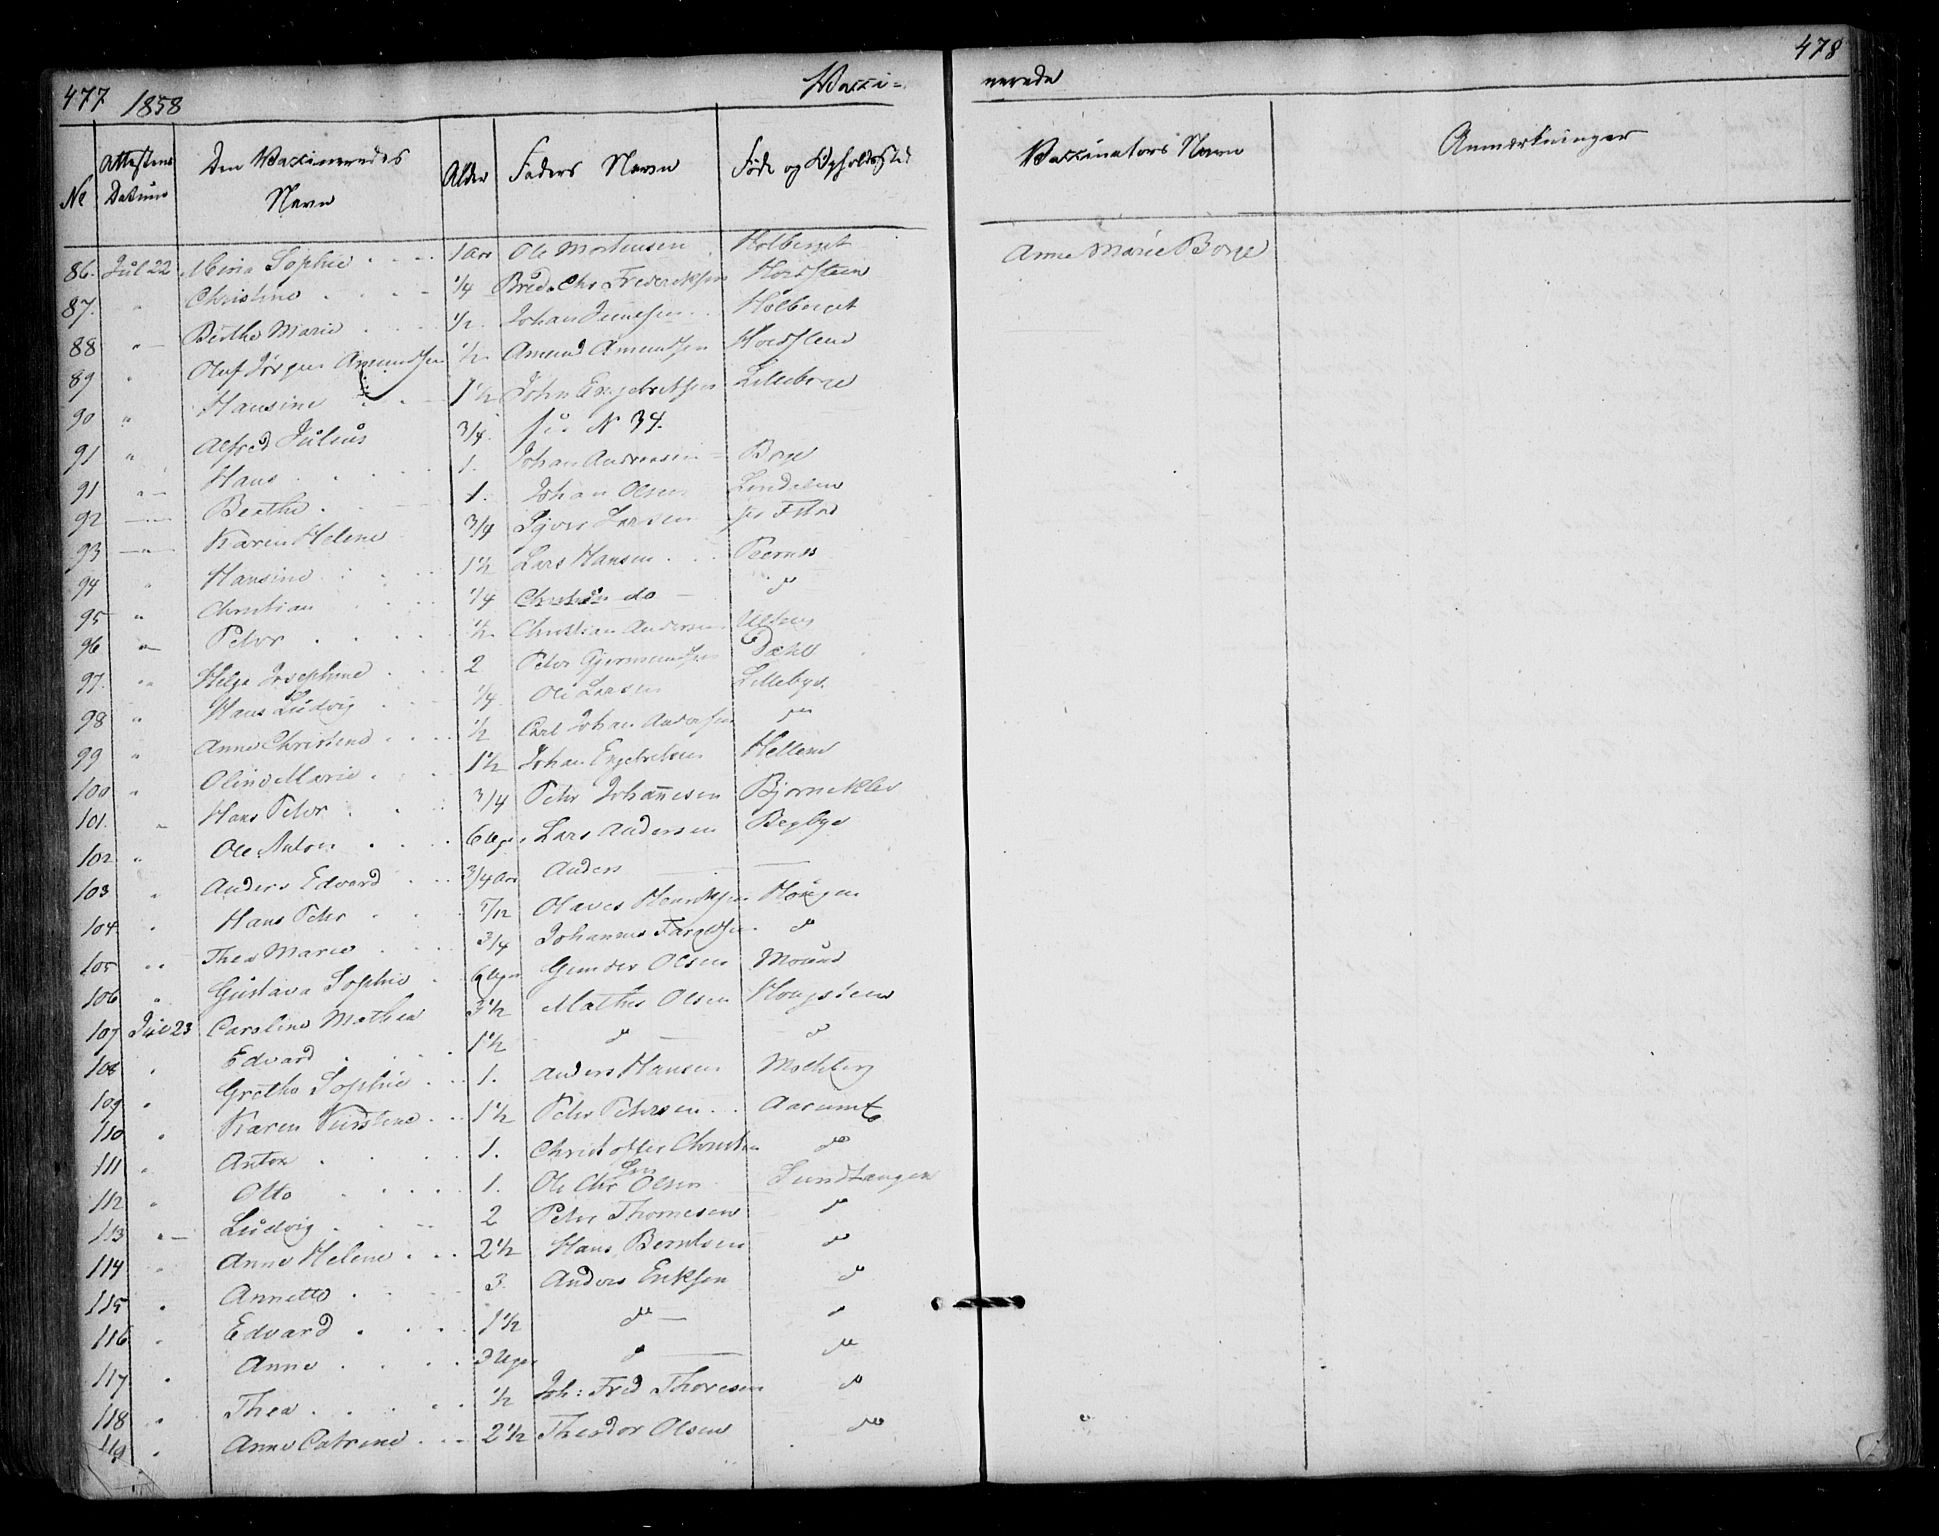 477 1858 Vacci-
No Attestens Datum Den Vaccineredes Navn Alder Faders Navn Føde og Opholdssted
86. Jul 22 Sophie 1 Aar Ole Mortensen Holberget
87. " Christine 1/4 Fredericksen
88 " Berthe Marie 1/2 Johan Holberget
89 " Oluf Jørgen Amundsen 1/2 Amund Amundsen
90 " Hansine 1 1/2 Johan Engebretsen Lilleborge
91 " Alfred Julius 3/4 N 34.
91 " Hans 1. Johan Andreasen Borge
92 " Berthe 1. Johan Olsen
93 " Karen Helene 3/4 Larsen
94 " Hansine 1 1/2 Lars Hansen
95 " Christian 1/4 do
96 " Peter 1/2 Christian Andersen
97. " Helga Josephine 2 Peter Gjermundsen Dæhle
98 " Hans Ludvig 1/4 Ole Larsen Lillebye
99 " Anne Christine 1/2 Carl Johan Andersen do
100 " Oline Marie 1 1/2 Johan Engebretsen
101. " Hans Peter 3/4 Peter Johannesen Bjørneklev
102 " Ole Anton 6 Uger Lars Andersen Begbye
103 " Anders Edvard 3/4 Aar Anders
104 " Hans Peter 7/12 Olaves Henriksen Haugen
105 " Thea Marie 3/4 Johannes do
106 " Gustava Sophie 6 Uger Gunder Olsen
107 Jul 23 Caroline Mathea 3 1/2 Mathis Olsen
108 " Edvard 1 1/2 do do
109 " Grethe Sophie 1. Anders Hansen
110 " Karen Kirstine 1 1/2 Peter Petersen
111 " Anton 1. Christoffer do
112 " Otto 1. Ole Chr Olsen Sundtangen
113 " Ludvig 2 Peter Thomesen do
114 " Anne Helene 2 1/2 Hans Berntsen do
115 " Annette 3 Anders Eriksen do
116 " Edvard 1 1/2 do do
117 " Anne 3 Uger do do
118 " Thea 1/2 Joh: Fred Thoresen do
119 " Anne Catrine 2 1/2 Theodor Olsen do
nerede 478
Vaccinators Navn Anmærkninger
Anne Marie Borge